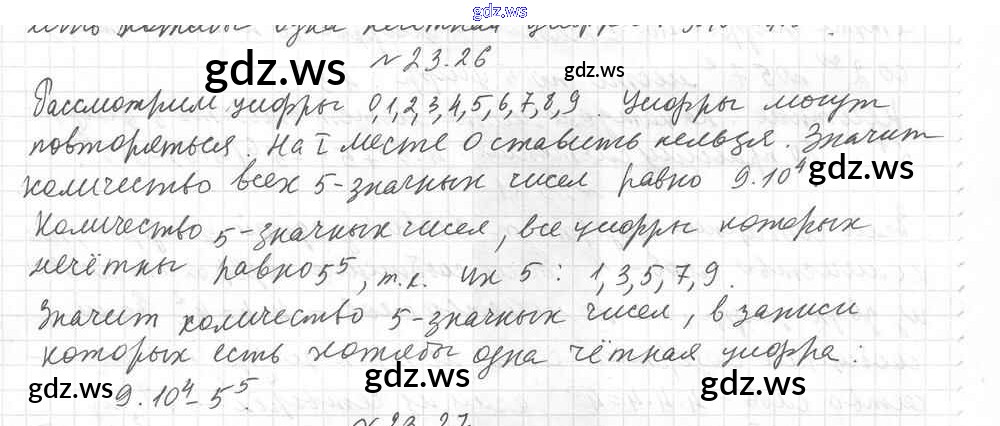 gdz.ws
есть хотя бы одна нечётная цифра:
№23.26
gdz.ws gdz.ws
Рассмотрим цифры 0,1,2,3,4,5,6,7,8,9. Цифры могут
повторяться. На I месте 0 ставить нельзя. Значит
количество всех 5-значных чисел равно 9.10⁴. gdz.ws
Количество 5-значных чисел, все цифры которых
нечётны равно 5⁵, т.к. их 5: 1,3,5,7,9.
Значит количество 5-значных чисел, в записи
которых есть хотя бы одна чётная цифра:
gdz.ws 9.10⁴-5⁵. gdz.ws gdz.ws
№23.27